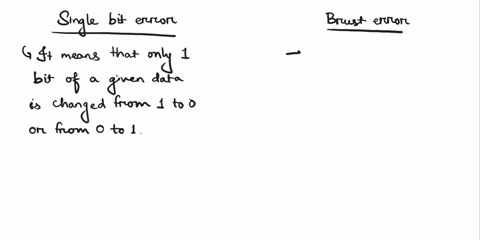 Single bit error
Brust error
↳ It means that only 1
bit of a given data
is changed from 1 to 0
or from 0 to 1.
→